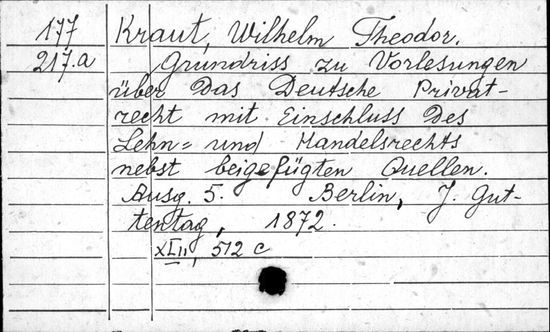 177 Kraut, Wilhelm Theodor.
217.a Grundriss zu Vorlesungen
über das Deutsche Privat-
recht mit Einschluss des
Lehn= und Handelsrechts
nebst beigefügten Quellen.
Ausg. 5. Berlin, J. Gut-
tentag, 1872.
XIII, 512 c